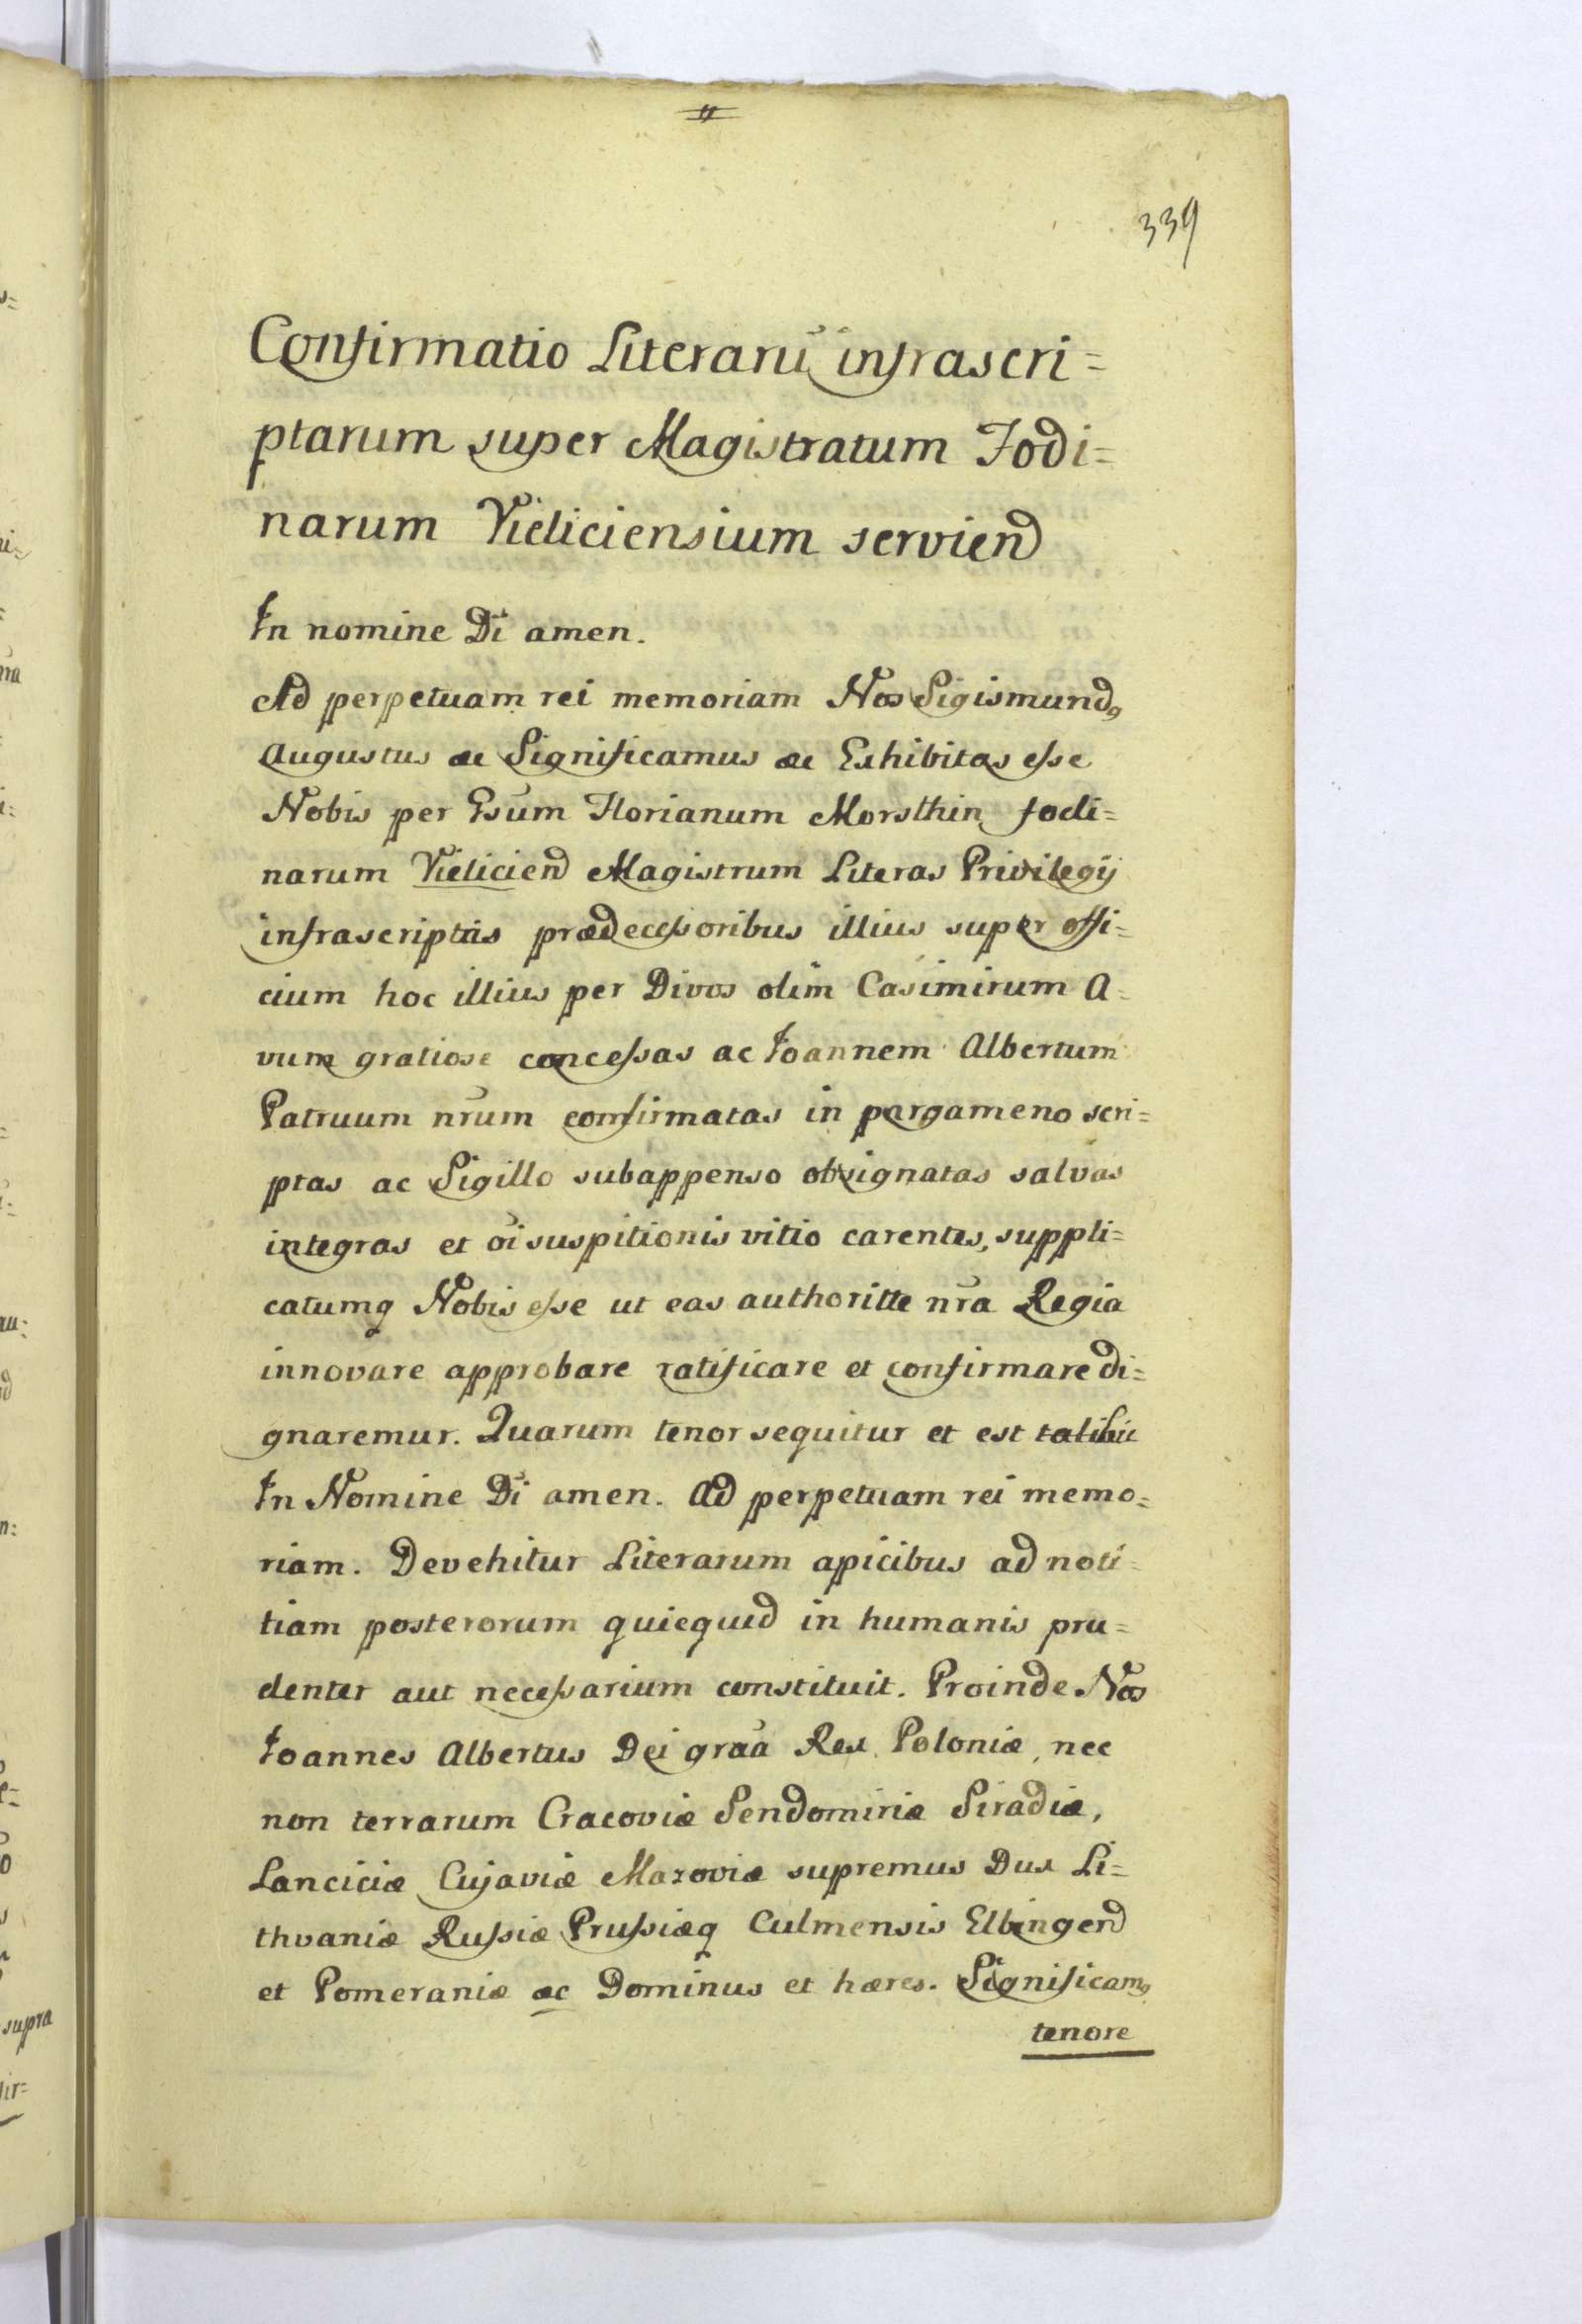 339
Confirmatio Literarū infrascri=
ptarum super Magistratum Fodi=
narum Vieliciensium serviend
In nomine Dī amen.
Ad perpetuam rei memoriam Nos Sigismundꝰ
Augustus ac Significamus ac Exhibitas esse
Nobis per Gsūm Florianum Morsthin fodi=
narum Vieliciend Magistrum Literas Privilegij
infrascriptas prædecessoribus illius super offi=
cium hoc illius per Divos olim Casimirum A=
vum gratiose concessas ac Ioannem Albertum
Patruum nrūm confirmatas in pargameno scri=
ptas ac Sigillo subappenso obsignatas salvas
integras et oī suspitionis vitio carentes, suppli=
catumq Nobis esse ut eas authoritte nrā Regia
innovare approbare ratificare et confirmare di=
gnaremur. Quarum tenor sequitur et est talis
In Nomine Dī amen. Ad perpetuam rei memo=
riam. Devehitur Literarum apicibus ad noti=
tiam posterorum quicquid in humanis pru=
denter aut necessarium constituit. Proinde Nos
Ioannes Albertus Dei graā Rex Poloniæ, nec
non terrarum Cracoviæ Sendomiriæ Siradiæ,
Lanciciæ Cujaviæ Mazoviæ supremus Dux Li=
thvaniæ Russiæ Prussiæq Culmensis Elbingend
et Pomeraniæ ac Dominus et hæres. Significamꝰ
tenore